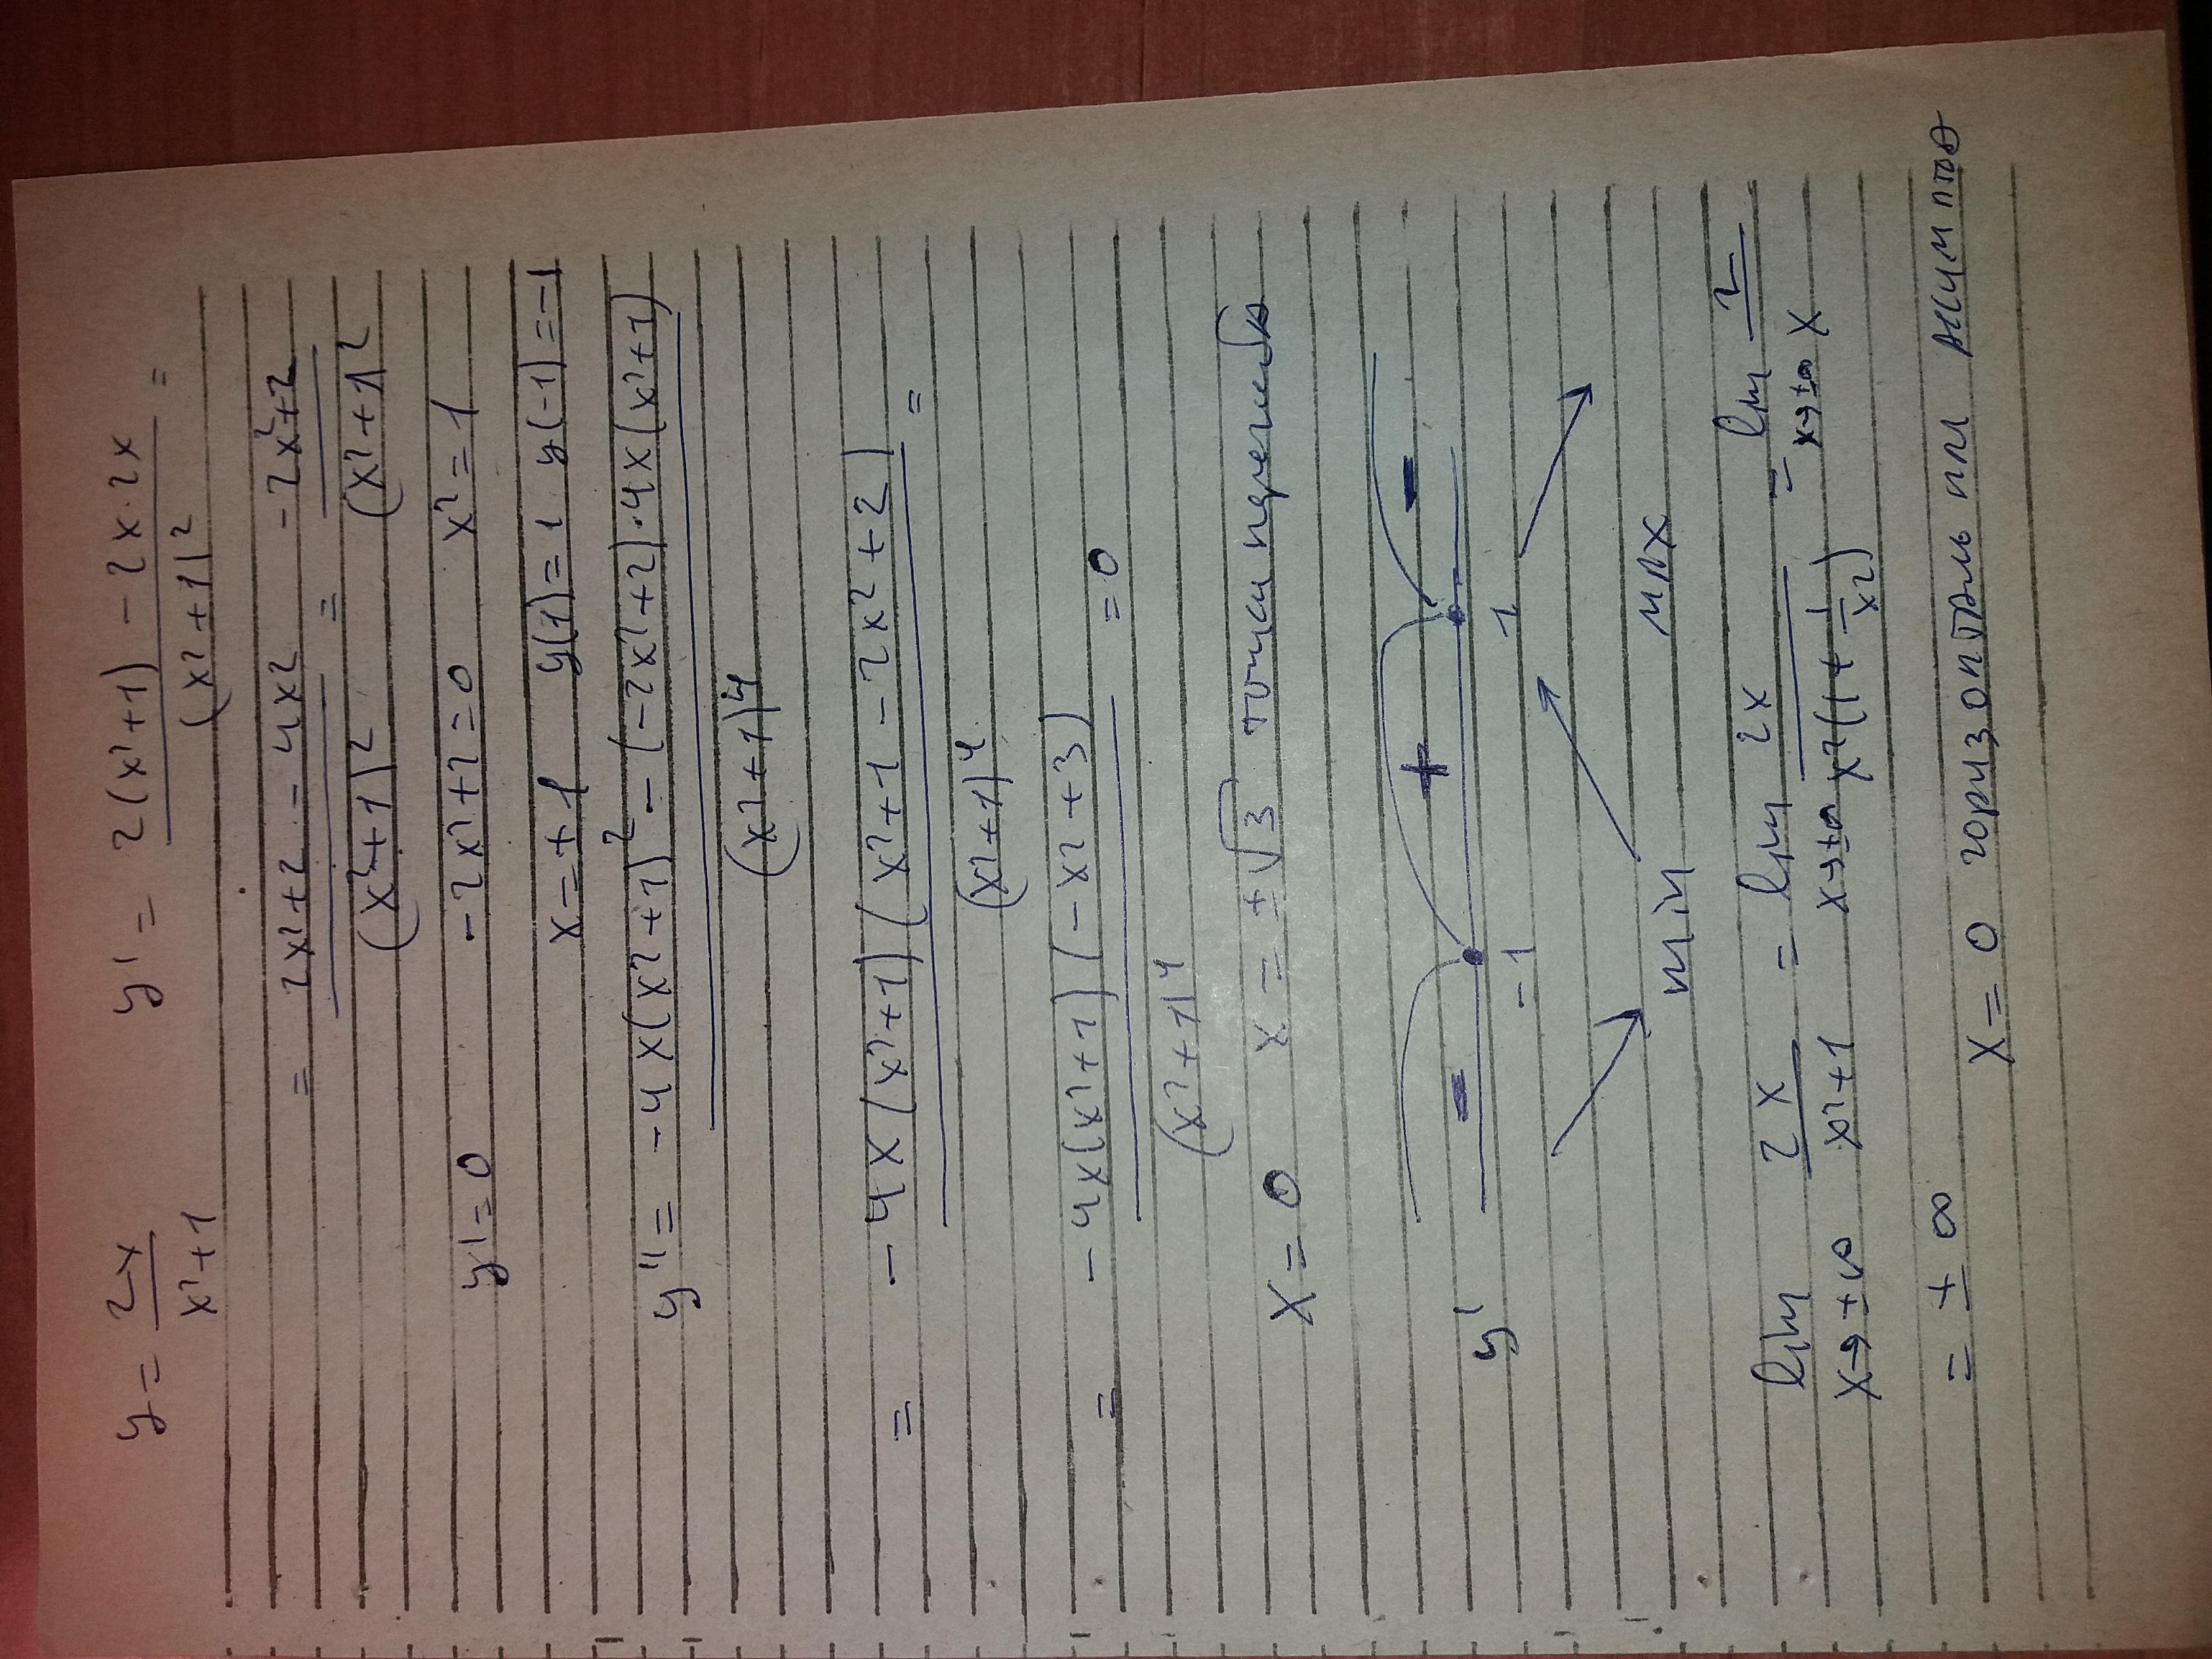 y = 2x/(x²+1)   y' = (2(x²+1) - 2x·2x)/(x²+1)² =
= (2x²+2-4x²)/(x²+1)² = (-2x²+2)/(x²+1)²
y'=0   -2x²+2=0   x²=1
x=±1   y(1)=1   y(-1)=-1
y'' = (-4x(x²+1)² - (-2x²+2)·4x(x²+1))/(x²+1)⁴
= (-4x(x²+1)(x²+1-2x²+2))/(x²+1)⁴ =
= (-4x(x²+1)(-x²+3))/(x²+1)⁴ = 0
x=0   x=±√3   точки перегиба
y'   -   +   -
-1   1
min   max
lim x→±∞ 2x/(x²+1) = lim x→±∞ 2x/(x²(1+1/x²)) = lim x→±∞ 2/x
= ±∞   x=0   горизонталь